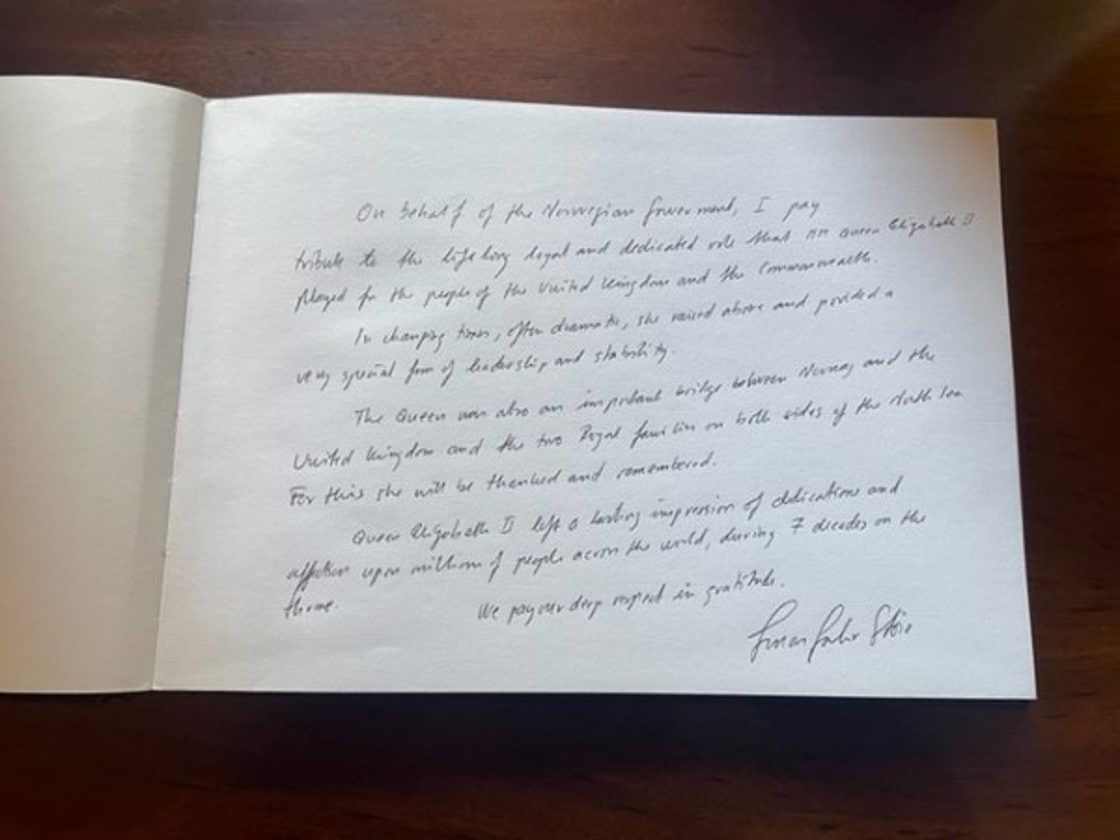 On behalf of the Norwegian Government, I pay
tribute to the lifelong loyal and dedicated role that HM Queen Elizabeth II
played for the people of the United Kingdom and the Commonwealth.
In changing times, often dramatic, she raised above and provided a
very special form of leadership and stability.
The Queen was also an important bridge between Norway and the
United Kingdom and the two Royal families on both sides of the North Sea
For this she will be thanked and remembered.
Queen Elizabeth II left a lasting impression of dedications and
affection upon millions of people across the world, during 7 decades on the
throne.
We pay our deep respect in gratitude.
Jonas Gahr Støre